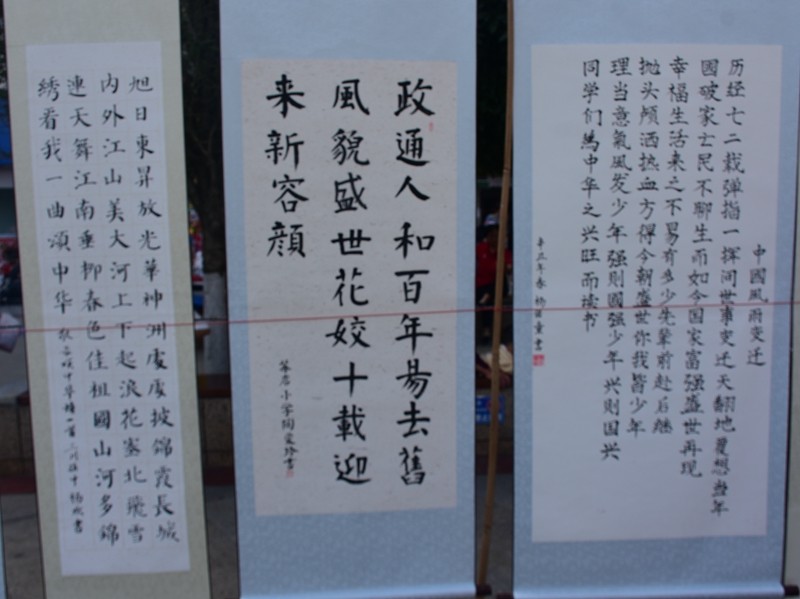 中國風雨变迁
历经七二载弹指一挥间世事变迁天翻地覆想当年
國破家亡民不聊生而如今国家富强盛世再现
幸福生活来之不易有多少先辈前赴后继
抛头颅洒热血方得今朝盛世你我皆少年
理当意氣風发少年强则國强少年兴则国兴
同学们為中华之兴旺而读书
辛丑年春 童書
政通人和百年易去舊
風貌盛世花姣十載迎
来新容顔
小学陶雯玲書
旭日東昇放光華神洲處處披錦霞長城
内外江山美大河上下起浪花塞北飛雪
連天舞江南垂柳春色佳祖國山河多錦
绣看我一曲頌中华